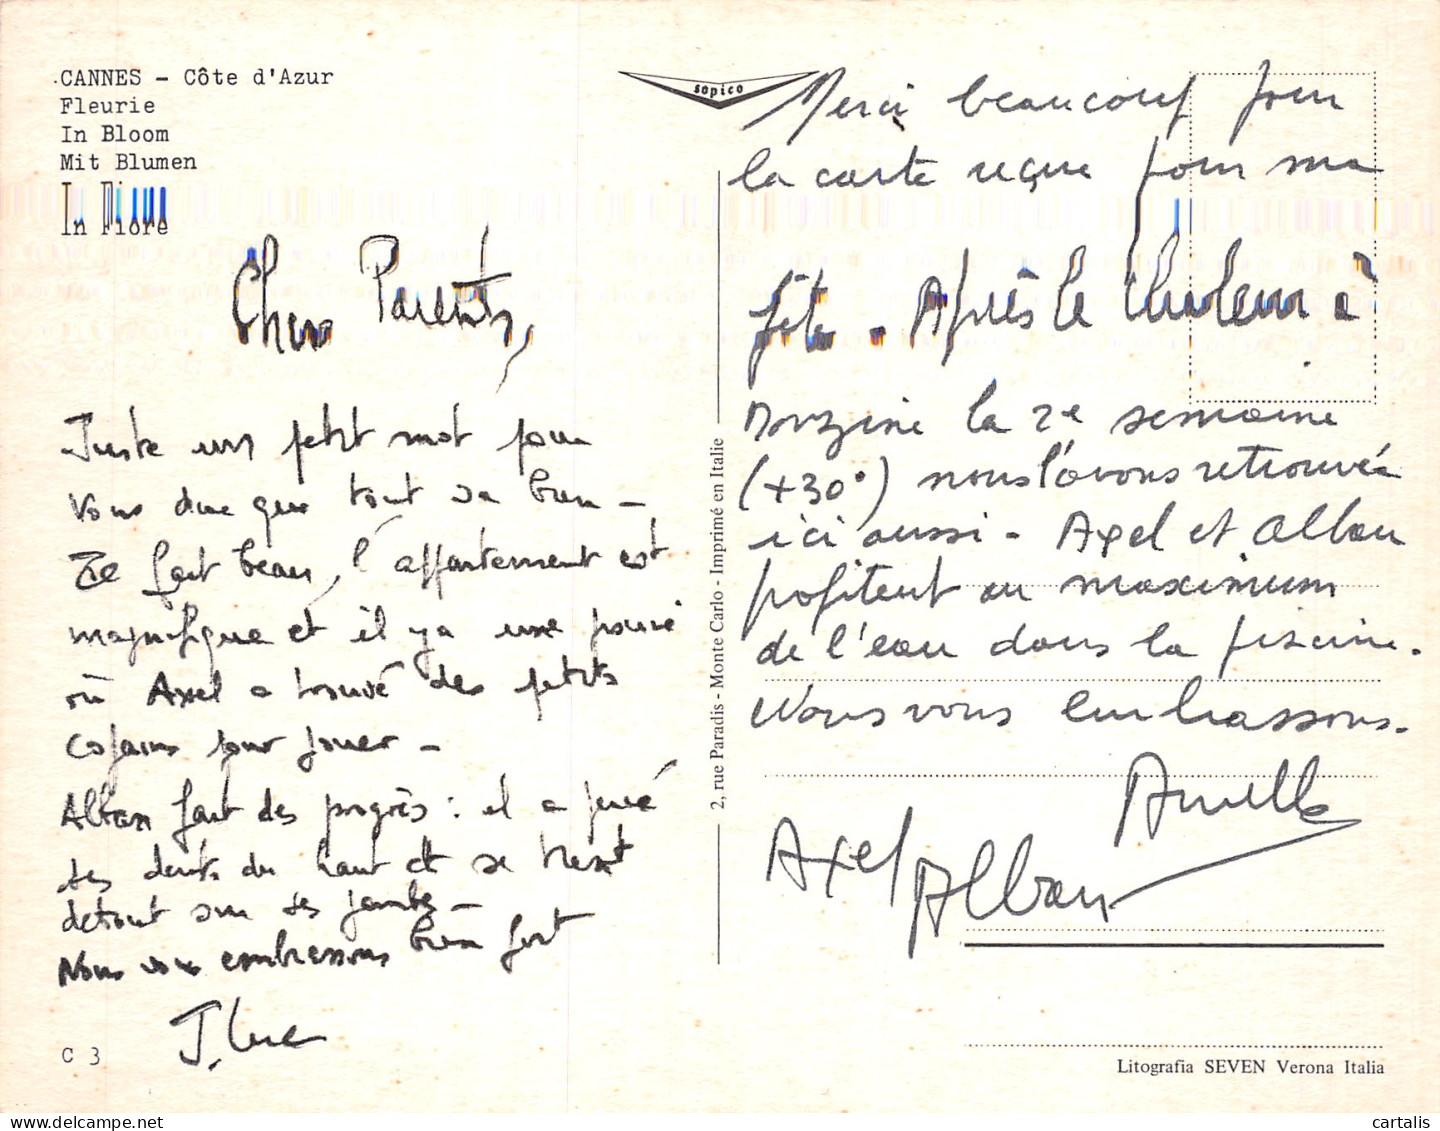 CANNES - Côte d'Azur
Fleurie
In Bloom
Mit Blumen
In Fiore
Chers Parents,
Juste un petit mot pour
vous dire que tout va bien -
Il fait beau, l'appartement est
magnifique et il y a une
où Axel a trouvé des petits
copains pour jouer -
Alban fait des progrès : il a percé
ses dents du haut et se tient
debout sur ses jambes -
Nous vous embrassons bien fort
J. Luc
C 3
sopico
2, rue Paradis - Monte Carlo - Imprimé en Italie
Merci beaucoup pour
la carte reçue pour ma
fête - Après la chaleur à
Morzine la 2e semaine
(+30°) nous l'avons retrouvée
ici aussi - Axel et Alban
profitent au maximum
de l'eau dans la piscine.
Nous vous embrassons.
Axel
Alban
Litografia SEVEN Verona Italia
cartalis